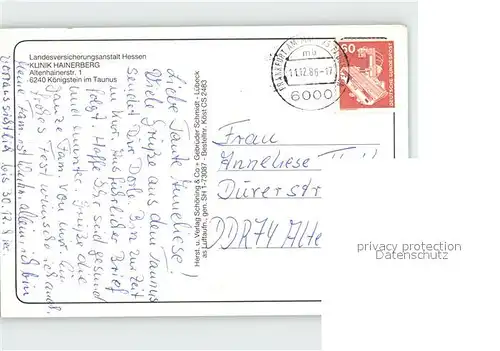 Landesversicherungsanstalt Hessen
KLINIK HAINERBERG
Altenhainerstr. 1
6240 Königstein im Taunus
Liebe Tante Anneliese!
Viele Grüße aus dem Taunus
sendet Dir Dorle. Bin zur Zeit
zu Kur. Ausführlicher Brief
folgt. Hoffe Ihr seid gesund
und munter. Grüße die
ganze Fam. von mir. Ein
frohes Fest wünsche ich auch
meine Fam. ist Weihn. allein, ich bin
voraussichtlich bis 30.12. hier.
Herst. u. Verlag Schöning & Co + Gebrüder Schmidt - Lübeck
as Luftaufn., gen. SH 1-73087 - Bestellnr. Köst OS 2463
FRANKFURT AM MAIN
mb
11.12.86-17
6000
60
DEUTSCHE BUNDESPOST
Frau
Anneliese
Dürerstr
DDR 74 Alte
privacy protection
Datenschutz